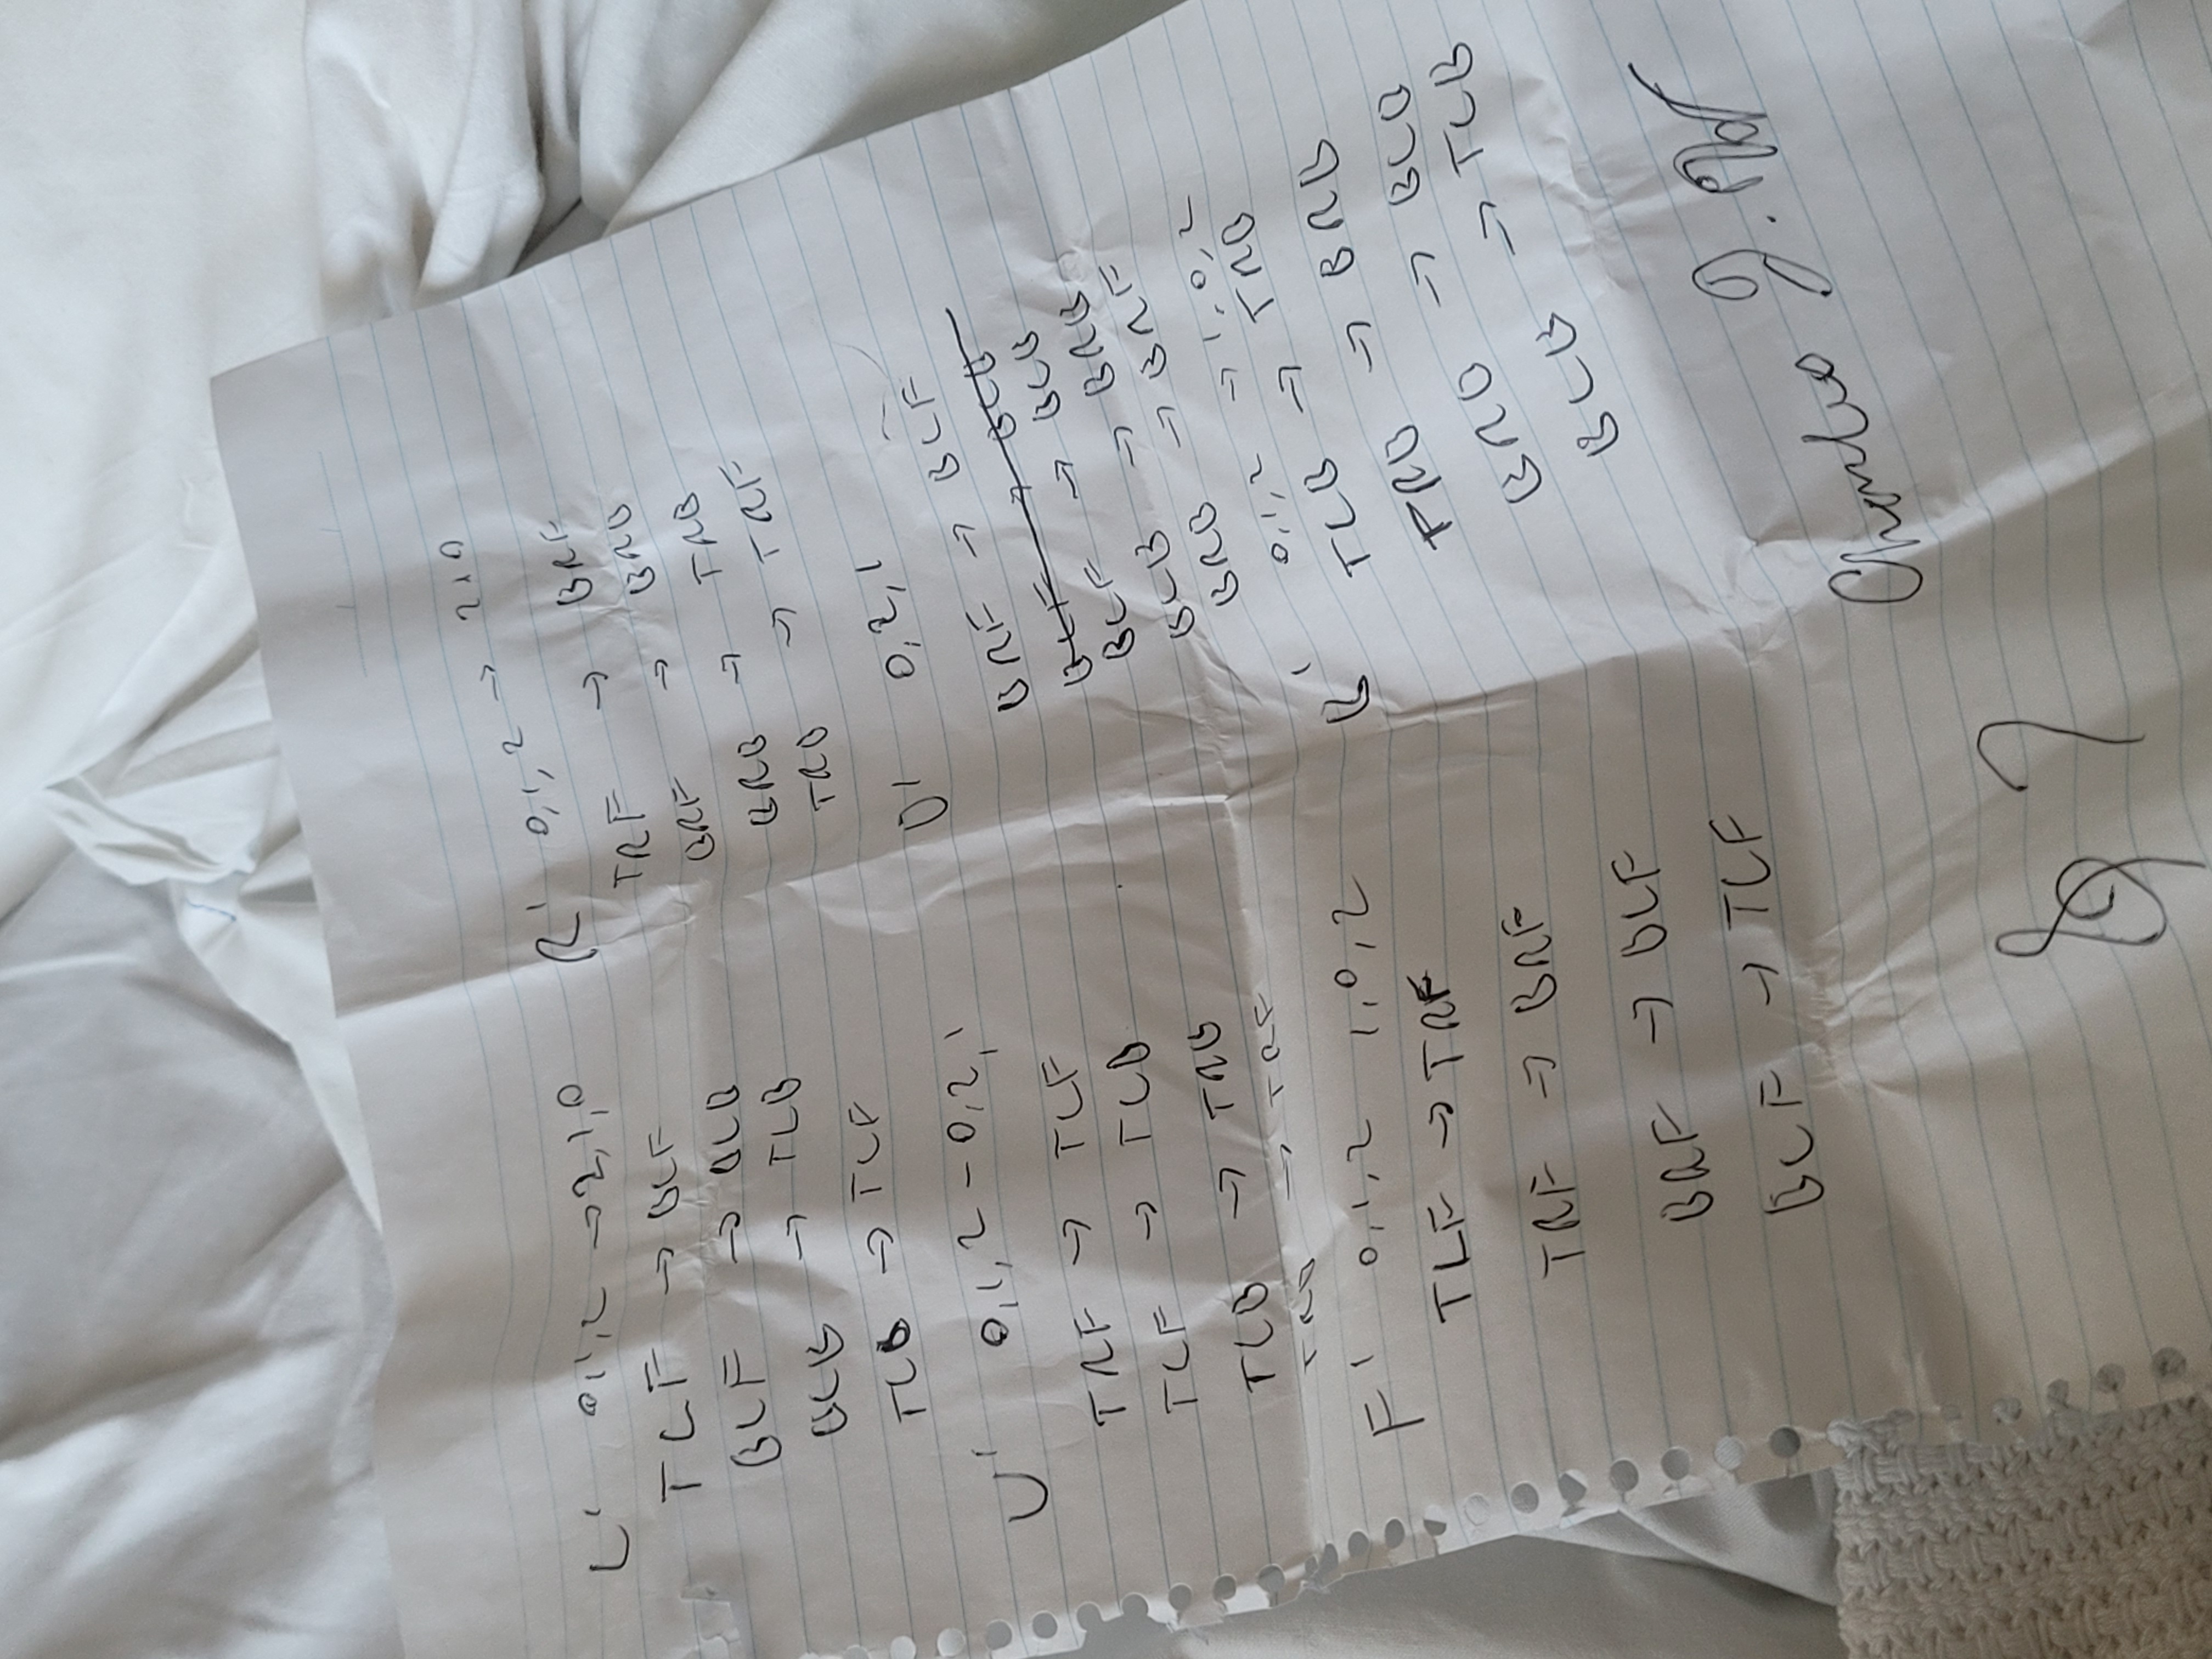 L' 0,1,2 → 2,1,0
TLF → BLF
BLF → BLB
BLB → TLB
TLB → TLF
U' 0,1,2 - 0,2,1
TRF → TLF
TLF → TLB
TLB → TRB
TRB → TRF
F' 0,1,2 1,0,2
TLF → TRF
TRF → BRF
BRF → BLF
BLF → TLF
R' 0,1,2 → 2,1,0
TRF → BRF
BRF → BRB
BRB → TRB
TRB → TRF
D' 0,2,1
BRF → BLF
BLF → BLB
BLF → BLB
BLB → BRB
BRB → BRF
B' 0,1,2 → 1,0,2
TLB → TRB
TRB → BRB
BRB → BLB
BLB → TLB
Charles J.